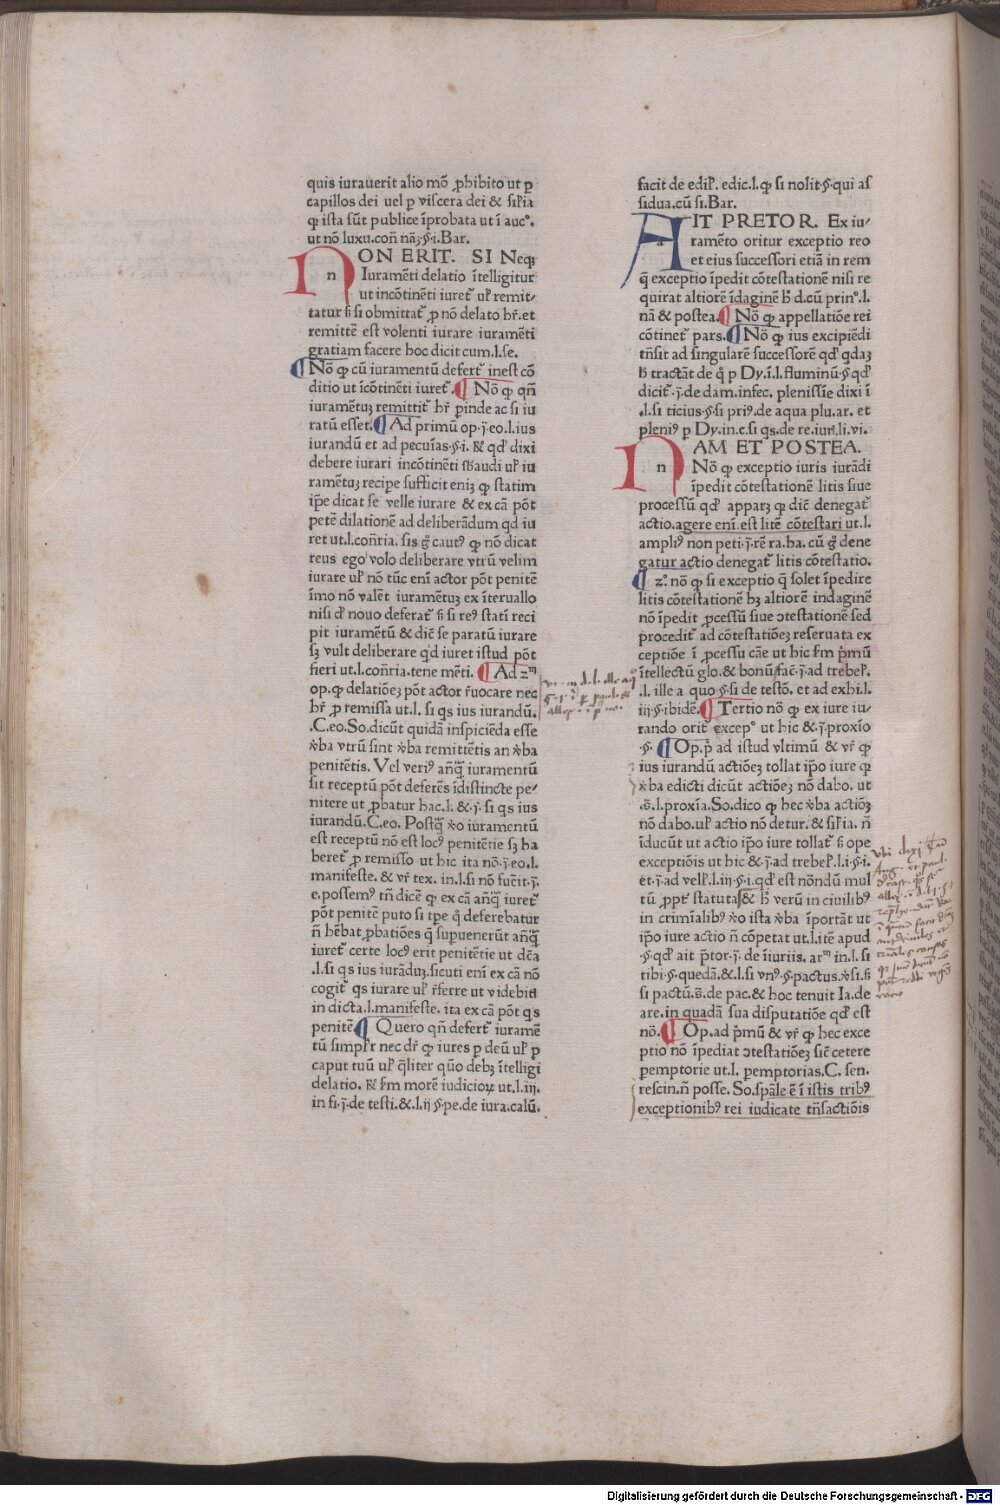 quis iurauerit alio mõ ꝓhibito ut ꝑ
capillos dei uel ꝑ viscera dei & sil'ia
ꝙ ista sũt publice ĩprobata ut ĩ aucº.
ut nõ luxu.con̄ nãꝫ.§.i.Bar.
NON ERIT. SI Neqꝫ
Iuramẽti delatio ĩtelligitur
ut incõtinẽti iuret' ul' remit/
tatur ꝓ nõ delato hr̃.et
remittẽ est volenti iurare iuramẽti
gratiam facere hoc dicit cum.l.se.
¶ Nõ ꝙ cũ iuramentũ defert' inest cõ
ditio ut ĩcõtinẽti iuret'. ¶ Nõ ꝙ qñ
iuramẽtuꝫ remittit' hr̃ ꝑinde ac si iu
ratũ esset. ¶ Ad primũ op.j.eo.l.ius
iurandũ et ad pecuĩas.§.i. qd' dixi
debere iurari incõtinẽti ul' iu
ramẽtuꝫ recipe sufficit eniꝫ ꝙ statim
ip̃e dicat se velle iurare & ex cã põt
petẽ dilationẽ ad deliberãdum qd iu
ret ut.l.con̄ria. sis g̃ caut' ꝙ nõ dicat
reus ego volo deliberare vtrũ velim
iurare ul' nõ tũc enĩ actor põt penitẽ
ĩmo nõ valẽt iuramẽtuꝫ ex ĩteruallo
nisi d' nouo deferat' si re' statĩ reci
pit iuramẽtũ & dic̃ se paratũ iurare
sꝫ vult deliberare qd iuret istud põt
fieri ut.l.con̄ria.tene mẽti. ¶ Ad 2ᵐ
op.ꝙ delatiõeꝫ põt actor r̃uocare nec
hr̃ ꝓ remissa ut.l. si qs ius iurandũ.
.C.eo.So.dicũt quidã inspiciẽda esse
v̾ba vtrũ sint v̾ba remittẽtis an v̾ba
penitẽtis. Vel veri' añq̃ iuramentũ
sit receptũ põt deferẽs ĩdistincte pe/
nitere ut ꝓbatur hac.l. &.j. si qs ius
iurandũ.C.eo. Postq̃ v̾o iuramentũ
est receptũ nõ est loc' penitẽtie sꝫ ha
beret' ꝓ remisso ut hic ita nõ.j.eo.l.
manifeste. & vr̃ tex. in.l.si nõ fuẽit.j.
e.possem' tñ dicẽ ꝙ ex cã añq̃ iuret'
põt penitẽ puto si tpe q̃ deferebatur
ñ hẽbat ꝓbatiões q̃ supuenerũt añq̃
iuret' certe loc' erit penitẽtie ut dc̃a
.l.si qs ius iurãduꝫ.sicuti enĩ ex cã nõ
cogit' qs iurare ul' r̃ferre ut videbit̃
in dicta.l.manifeste. ita ex cã põt qs
penitẽ. ¶ Quero qñ defert' iuramẽ
tũ simpl'r nec dr̃ ꝙ iures ꝑ deũ ul' ꝑ
caput tuũ ul' q̃liter quõ debꝫ ĩtelligi
delatio. morẽ iudicioꝝ ut.l.iij.
in fi.j.de testi.&.l.ij.§.pe.de iura.calũ.
facit de edil'. edic.l.ꝙ si nolit.§.qui as
sidua.cũ si.Bar.
AIT PRETOR. Ex iu/
ramẽto oritur exceptio reo
et eius successori etiã in rem
q̃ exceptio ĩpedit cõtestationẽ nisi re
quirat altiorẽ ĩdaginẽ h̃ d.cũ prinº.l.
nã & postea. ¶ Nõ ꝙ appellatiõe rei
cõtinet' pars. ¶ Nõ ꝙ ius excipiẽdi
tñsit ad singularẽ successorẽ qd' qdaꝫ
h̃ tractãt de q̃ ꝑ Dy.ĩ.l.fluminũ.§.qd'
dicit'.j.de dam.infec. plenissĩe dixi ĩ
.l.si ticius.§.si pri'.de aqua plu.ar. et
pleni' ꝑ Dy.in.c.si qs.de re.iur̃.li.vi.
NAM ET POSTEA.
Nõ ꝙ exceptio iuris iurãdi
ĩpedit cõtestationẽ litis siue
processũ qd' apparꝫ ꝙ dic̃ denegat'
actio.agere enĩ.est litẽ cõtestari ut.l.
ampli' non peti.j.rẽ ra.ha.cũ g̃ dene
gatur actio denegat' litis cõtestatio.
¶ 2º. nõ ꝙ si exceptio q̃ solet ĩpedire
litis cõtestationẽ hꝫ altiorẽ indaginẽ
nõ ĩpedit ꝓcessũ siue ɔtestationẽ sed
procedit' ad cõtestatiõeꝫ reseruata ex
ceptiõe ĩ ꝓcessu cãe ut hic p̃mũ
ĩtellectũ glo.& bonũ fac̃.j.ad trebel'.
.l. ille a quo.§.si de testõ. et ad exhi.l.
iij.§.ibidẽ. ¶ Tertio nõ ꝙ ex iure iu/
rando orit' excepº ut hic &.j.proxĩo
.§. ¶ Op.p̃ ad istud vltimũ & vr̃ ꝙ
ius iurandũ actiõeꝫ tollat ip̃o iure ꝙ
v̾ba edicti dicũt actiõeꝫ nõ dabo. ut
.s̃.l.proxĩa.So.dico ꝙ hec v̾ba actiõꝫ
nõ dabo.ul' actio nõ detur.& sil'ia. ñ
ĩducũt ut actio ip̃o iure tollat' ope
exceptiõis ut hic &.j.ad trebel'.l.i.§.i.
et.j.ad vell'.l.iij.§.i.qd' est nõndũ mul
tũ ꝓpt' statuta & h̃ verũ in ciuilib'
in crimĩalib' v̾o ista v̾ba ĩportãt ut
ip̃o iure actio ñ cõpetat ut.l.itẽ apud
.§.qd' ait p̃tor.j.de ĩiuriis. arᵐ in.l.si
tibi.§.quedã.&.l.si vn'.§.pactus.
si pactũ.s̃.de pac.& hoc tenuit Ia.de
are.in quadã sua disputatiõe qd' est
nõ. ¶ Op.ad p̃mũ & vr̃ ꝙ hec exce
ptio nõ ĩpediat ɔtestatiõeꝫ sic̃ cetere
ꝑemptorie ut.l. ꝑemptorias.C. sen.
rescin.ñ posse. So.sp̃ale ẽ ĩ istis trib'
exceptionib' rei iudicate tñsactiõis
Digitalisierung gefördert durch die Deutsche Forschungsgemeinschaft - DFG